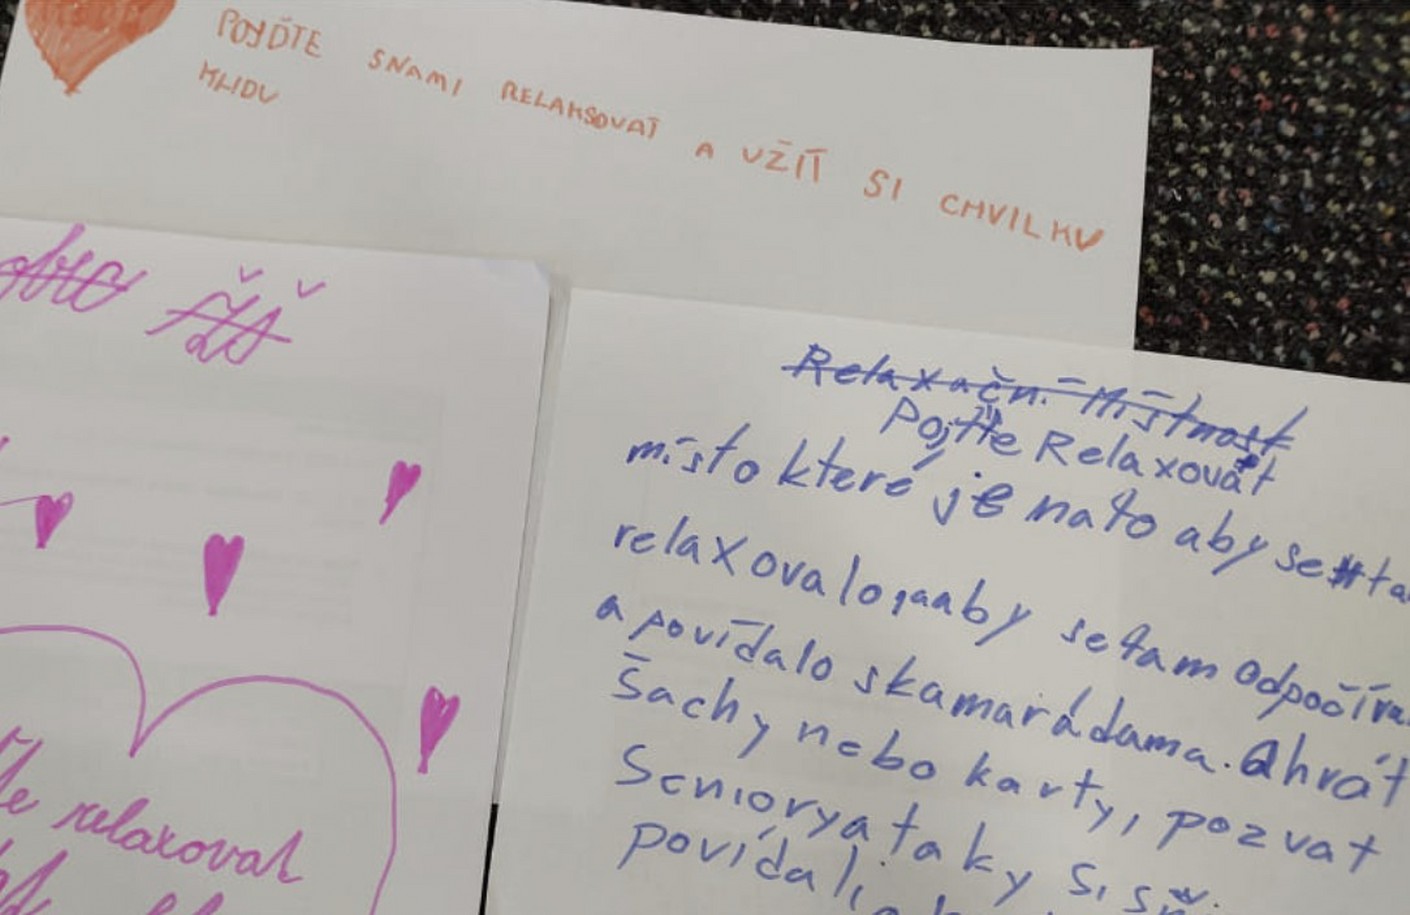 POJĎTE SNAMI RELAKSOVAT A UŽÍT SI CHVILKU
KLIDU
relaxoval
Relaxační Místnost
Pojďte Relaxovat
místo které je nato aby se
relaxovalo, aaby setam odpočíva
a povídalo skamarádama. Ahrát
Šachy nebo karty, pozvat
Seniory a taky si s
povídali